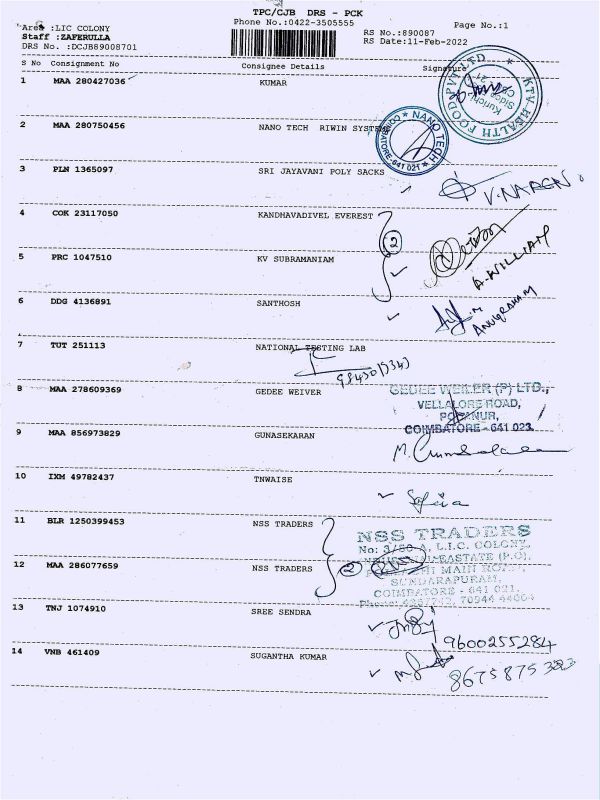 TPC/CJB DRS - PCK
Area :LIC COLONY
Phone No.:0422-3505555
Page No.:1
Staff :ZAFERULLA
RS No.:890087
DRS No. :DCJB89008701
RS Date:11-Feb-2022
S No Consignment No Consignee Details Signature
1 MAA 280427036 KUMAR
KTV HEALTH FOOD PVT LTD
2 MAA 280750456 NANO TECH RIWIN SYSTEMS
NANO TECH
COIMBATORE-641 021
3 PLN 1365097 SRI JAYAVANI POLY SACKS
V.NAREN
4 COK 23117050 KANDHAVADIVEL EVEREST
2
5 PRC 1047510 KV SUBRAMANIAM
A.WILLIAM
6 DDG 4136891 SANTHOSH
ANUGRAHAM
7 TUT 251113 NATIONAL TESTING LAB
8 MAA 278609369 GEDEE WEIVER
GEDEE WEILER (P) LTD.,
VELLALORE ROAD,
PODANUR,
COIMBATORE - 641 023.
9 MAA 856973829 GUNASEKARAN
10 IXM 49782437 TNWAISE
11 BLR 1250399453 NSS TRADERS
NSS TRADERS
No: 3/50-A, L.I.C. COLONY,
2
12 MAA 286077659 NSS TRADERS
MAIN ROAD,
SUNDARAPURAM,
COIMBATORE - 641 021.
13 TNJ 1074910 SREE SENDRA
9600255284
14 VNB 461409 SUGANTHA KUMAR